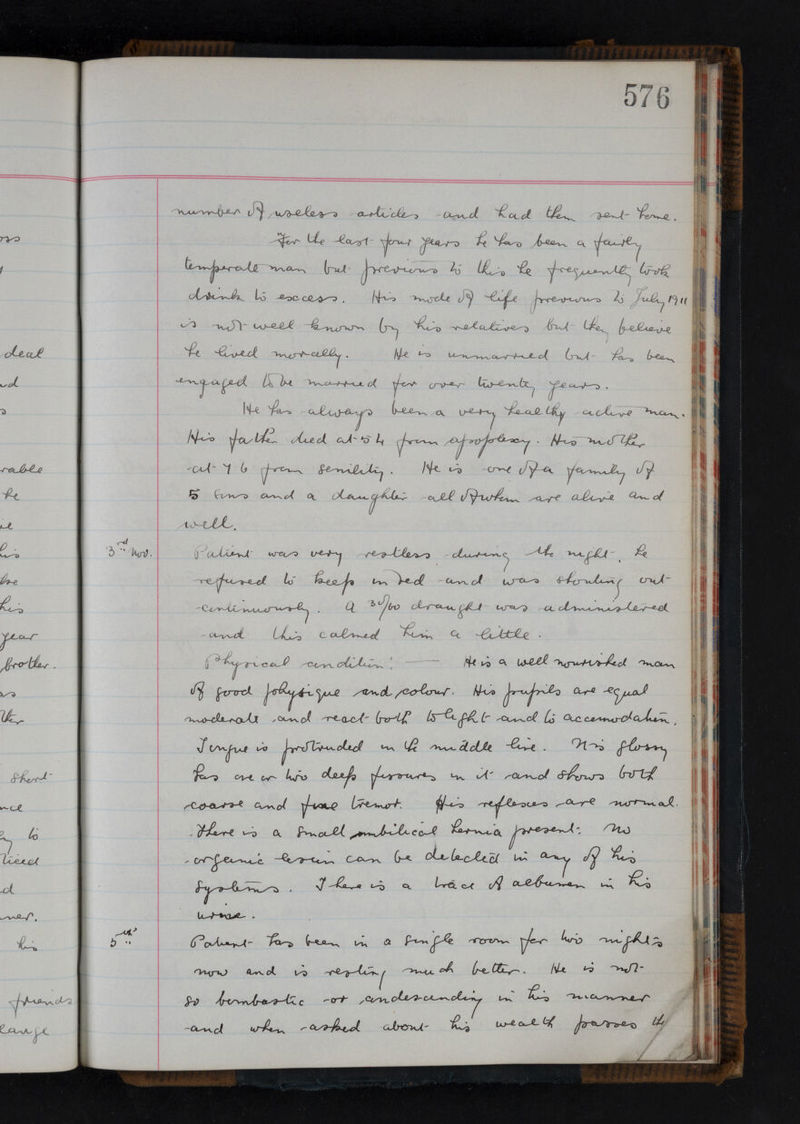 576
number of useless articles and had them sent home.
For the last four years he has been a fairly
temperate man but previous to this he frequently took
drink to excess. His mode of life previous to July 1911
is not well known by his relatives but they believe
he lived morally. He is unmarried but has been
engaged to be married for over twenty years.
He has always been a very healthy active man.
His father died at 54 from apoplexy. His mother
at 76 from senility. He is one of a family of
5 sons and a daughter all of whom are alive and
well.
3rd Nov. Patient was very restless during the night, he
refused to keep in bed and was shouting out
continuously. A draught was administered
and this calmed him a little.
Physical condition: — He is a well nourished man
of good physique and colour. His pupils are equal
moderate and react both to light and to accomodation.
Tongue is protruded in the middle line. It is glossy
has one or two deep fissures in it and shows both
coarse and fine tremor. His reflexes are normal.
There is a small umbilical hernia present. No
organic lesion can be detected in any of his
systems. There is a trace of albumen in his
urine.
5th Patient has been in a single room for two nights
now and is resting much better. He is not
so bombastic or condescending in his manner
and when asked about his wealth passes th
deal
rable
he
his
his
year
brother.
short
to
his
friends
large